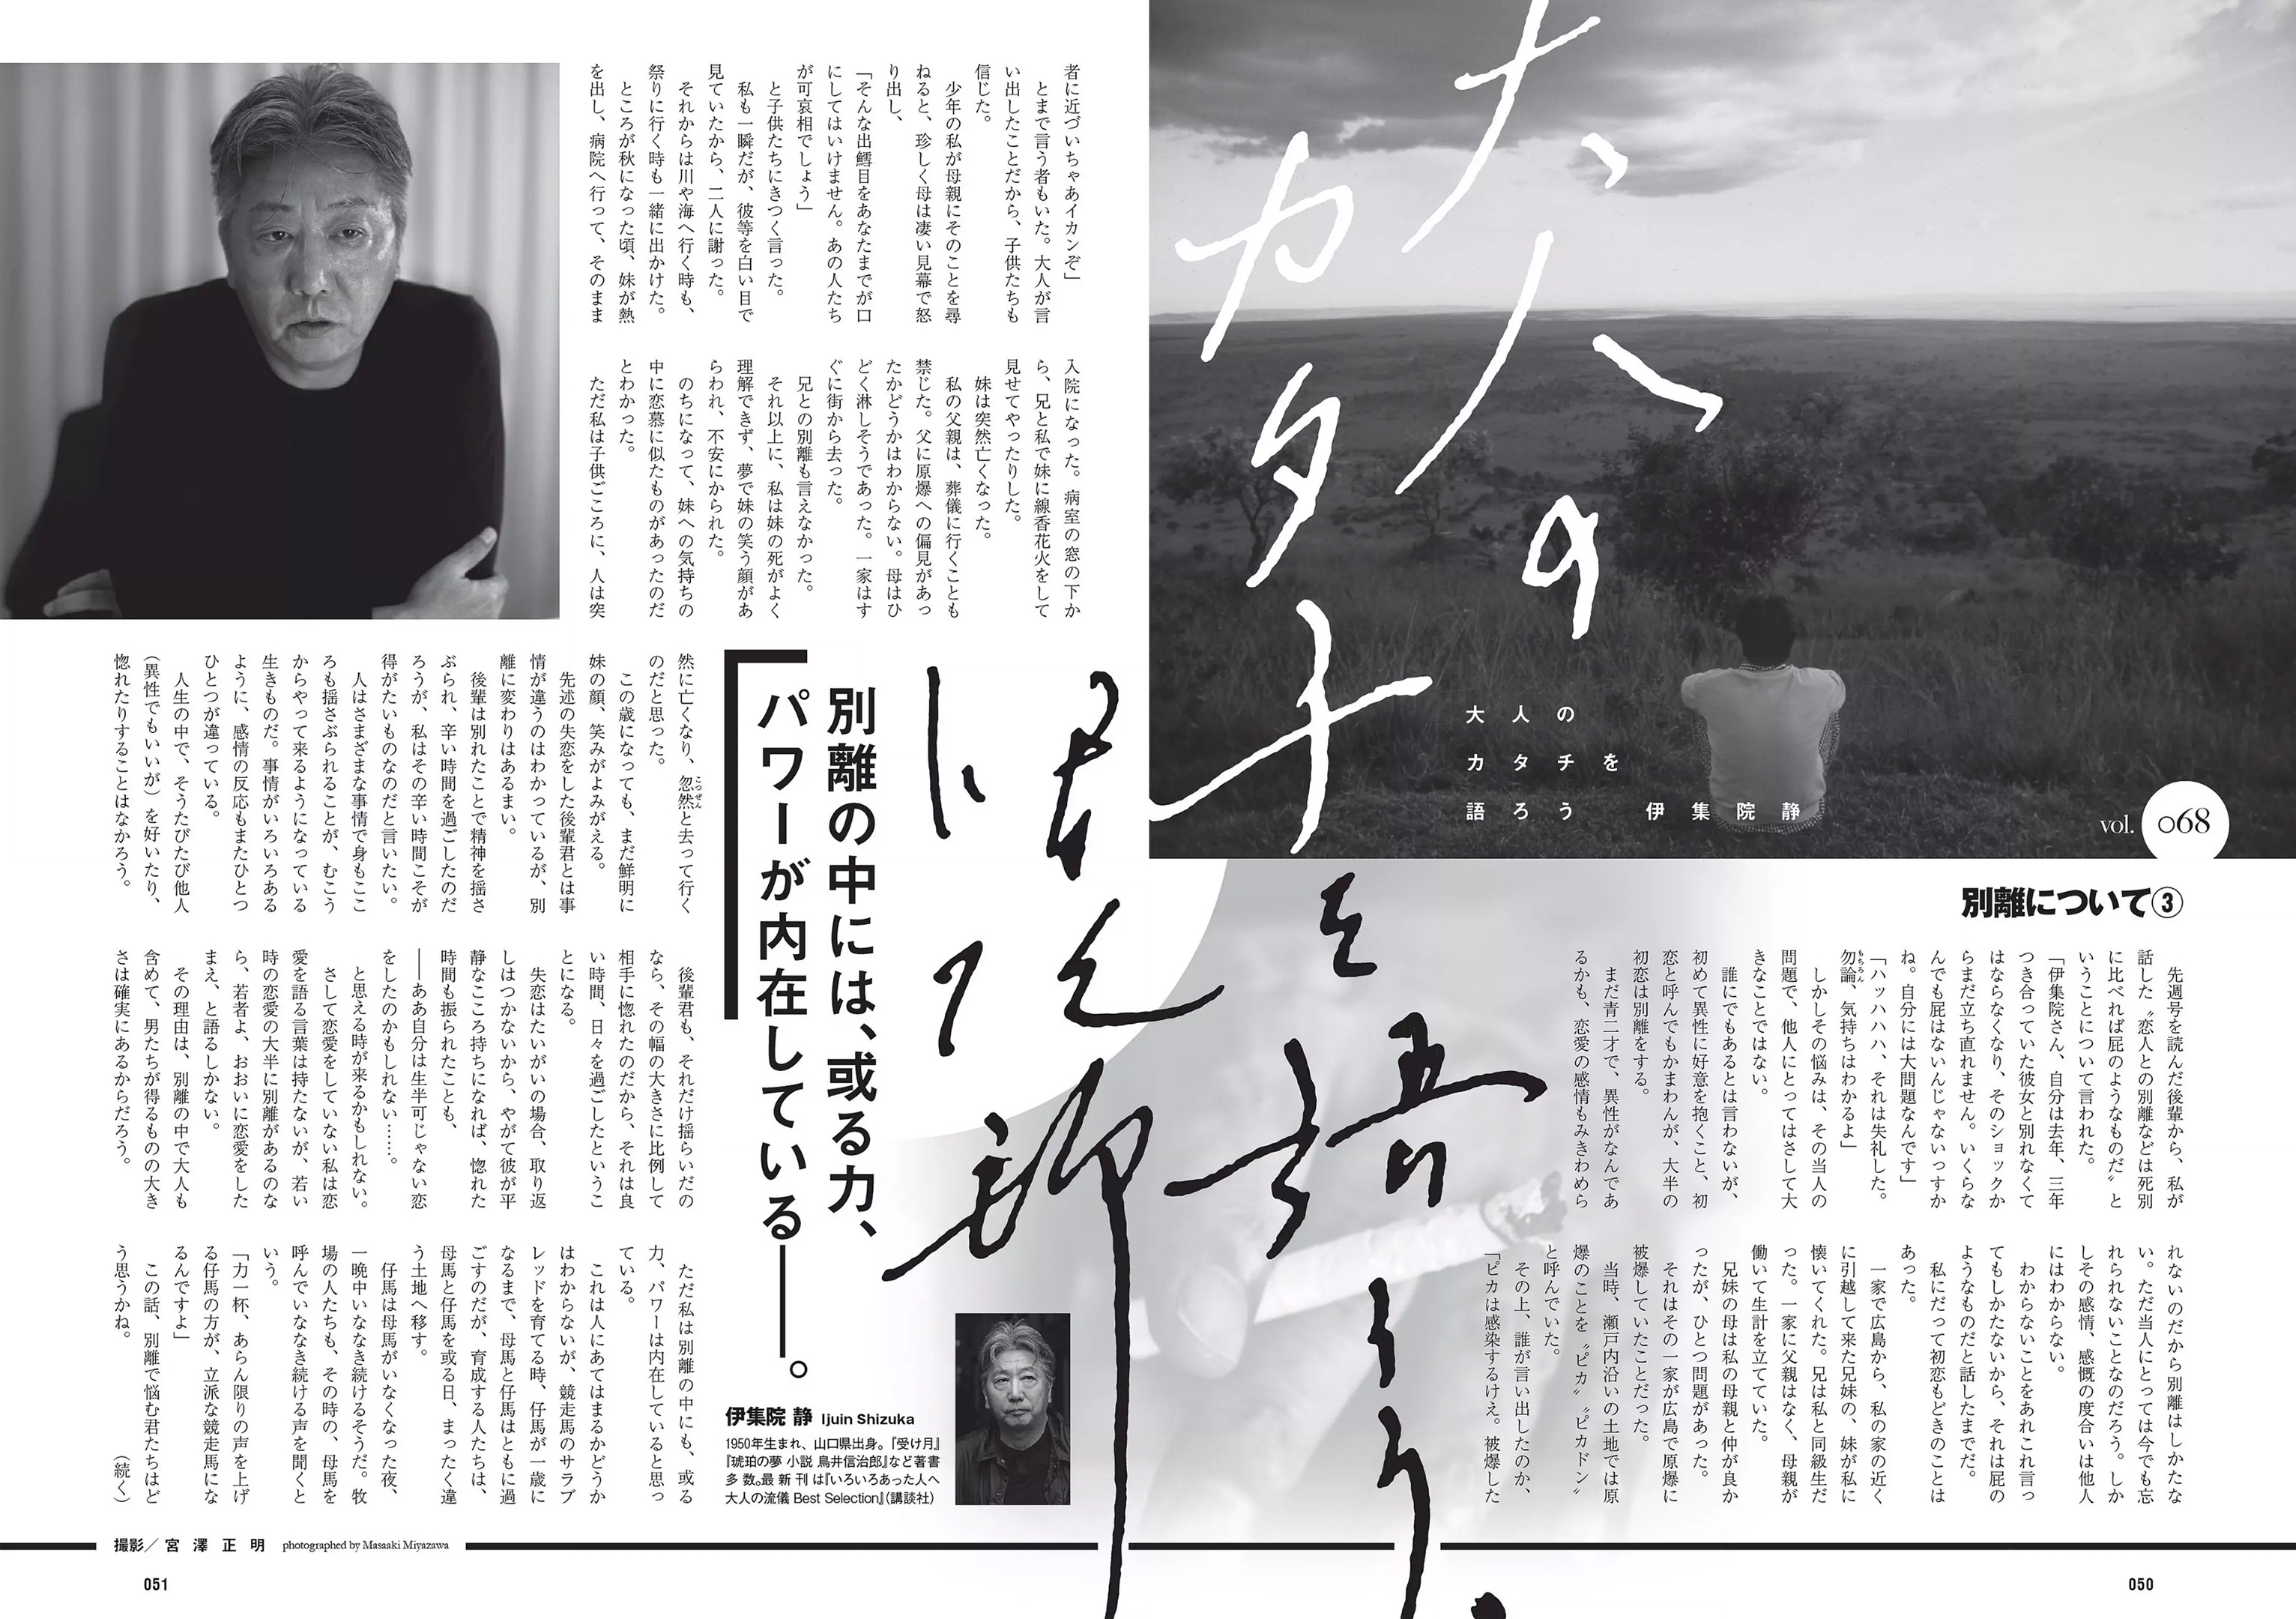 大人の
カタチ
を語ろう。
伊集院静
大人の
カタチを
語ろう　伊集院静
vol. 068
別離について③
　先週号を読んだ後輩から、私が
話した〝恋人との別離などは死別
に比べれば屁のようなものだ〟と
いうことについて言われた。
「伊集院さん、自分は去年、三年
つき合っていた彼女と別れなくて
はならなくなり、そのショックか
らまだ立ち直れません。いくらな
んでも屁はないんじゃないっすか
ね。自分には大問題なんです」
「ハッハハハ、それは失礼した。
勿論、気持ちはわかるよ」
もちろん
　しかしその悩みは、その当人の
問題で、他人にとってはさして大
きなことではない。
　誰にでもあるとは言わないが、
初めて異性に好意を抱くこと、初
恋と呼んでもかまわんが、大半の
初恋は別離をする。
　まだ青二才で、異性がなんであ
るかも、恋愛の感情もみきわめら
れないのだから別離はしかたな
い。ただ当人にとっては今でも忘
れられないことなのだろう。しか
しその感情、感慨の度合いは他人
にはわからない。
　わからないことをあれこれ言っ
てもしかたないから、それは屁の
ようなものだと話したまでだ。
　私にだって初恋もどきのことは
あった。
　一家で広島から、私の家の近く
に引越して来た兄妹の、妹が私に
懐いてくれた。兄は私と同級生だ
った。一家に父親はなく、母親が
働いて生計を立てていた。
　兄妹の母は私の母親と仲が良か
ったが、ひとつ問題があった。
　それはその一家が広島で原爆に
被爆していたことだった。
　当時、瀬戸内沿いの土地では原
爆のことを〝ピカ〟〝ピカドン〟
と呼んでいた。
　その上、誰が言い出したのか、
「ピカは感染するけえ。被爆した
者に近づいちゃあイカンぞ」
　とまで言う者もいた。大人が言
い出したことだから、子供たちも
信じた。
　少年の私が母親にそのことを尋
ねると、珍しく母は凄い見幕で怒
り出し、
「そんな出鱈目をあなたまでが口
にしてはいけません。あの人たち
が可哀相でしょう」
　と子供たちにきつく言った。
　私も一瞬だが、彼等を白い目で
見ていたから、二人に謝った。
　それからは川や海へ行く時も、
祭りに行く時も一緒に出かけた。
　ところが秋になった頃、妹が熱
を出し、病院へ行って、そのまま
入院になった。病室の窓の下か
ら、兄と私で妹に線香花火をして
見せてやったりした。
　妹は突然亡くなった。
　私の父親は、葬儀に行くことも
禁じた。父に原爆への偏見があっ
たかどうかはわからない。母はひ
どく淋しそうであった。一家はす
ぐに街から去った。
　兄との別離も言えなかった。
　それ以上に、私は妹の死がよく
理解できず、夢で妹の笑う顔があ
らわれ、不安にかられた。
　のちになって、妹への気持ちの
中に恋慕に似たものがあったのだ
とわかった。
　ただ私は子供ごころに、人は突
然に亡くなり、忽然と去って行く
こつぜん
のだと思った。
　この歳になっても、まだ鮮明に
妹の顔、笑みがよみがえる。
　先述の失恋をした後輩君とは事
情が違うのはわかっているが、別
離に変わりはあるまい。
　後輩は別れたことで精神を揺さ
ぶられ、辛い時間を過ごしたのだ
ろうが、私はその辛い時間こそが
得がたいものなのだと言いたい。
　人はさまざまな事情で身もここ
ろも揺さぶられることが、むこう
からやって来るようになっている
生きものだ。事情がいろいろある
ように、感情の反応もまたひとつ
ひとつが違っている。
　人生の中で、そうたびたび他人
（異性でもいいが）を好いたり、
惚れたりすることはなかろう。
　後輩君も、それだけ揺らいだの
なら、その幅の大きさに比例して
相手に惚れたのだから、それは良
い時間、日々を過ごしたというこ
とになる。
　失恋はたいがいの場合、取り返
しはつかないから、やがて彼が平
静なこころ持ちになれば、惚れた
時間も振られたことも、
――ああ自分は生半可じゃない恋
をしたのかもしれない……。
　と思える時が来るかもしれない。
　さして恋愛をしていない私は恋
愛を語る言葉は持たないが、若い
時の恋愛の大半に別離があるのな
ら、若者よ、おおいに恋愛をした
まえ、と語るしかない。
　その理由は、別離の中で大人も
含めて、男たちが得るものの大き
さは確実にあるからだろう。
　ただ私は別離の中にも、或る
力、パワーは内在していると思っ
ている。
　これは人にあてはまるかどうか
はわからないが、競走馬のサラブ
レッドを育てる時、仔馬が一歳に
なるまで、母馬と仔馬はともに過
ごすのだが、育成する人たちは、
母馬と仔馬を或る日、まったく違
う土地へ移す。
　仔馬は母馬がいなくなった夜、
一晩中いななき続けるそうだ。牧
場の人たちも、その時の、母馬を
呼んでいななき続ける声を聞くと
いう。
「力一杯、あらん限りの声を上げ
る仔馬の方が、立派な競走馬にな
るんですよ」
　この話、別離で悩む君たちはど
う思うかね。
（続く）
別離の中には、或る力、
パワーが内在している――。
伊集院 静 Ijuin Shizuka
1950年生まれ、山口県出身。『受け月』
『琥珀の夢 小説 鳥井信治郎』など著書
多数。最新刊は『いろいろあった人へ
大人の流儀 Best Selection』（講談社）
撮影／宮澤正明 photographed by Masaaki Miyazawa
051
050